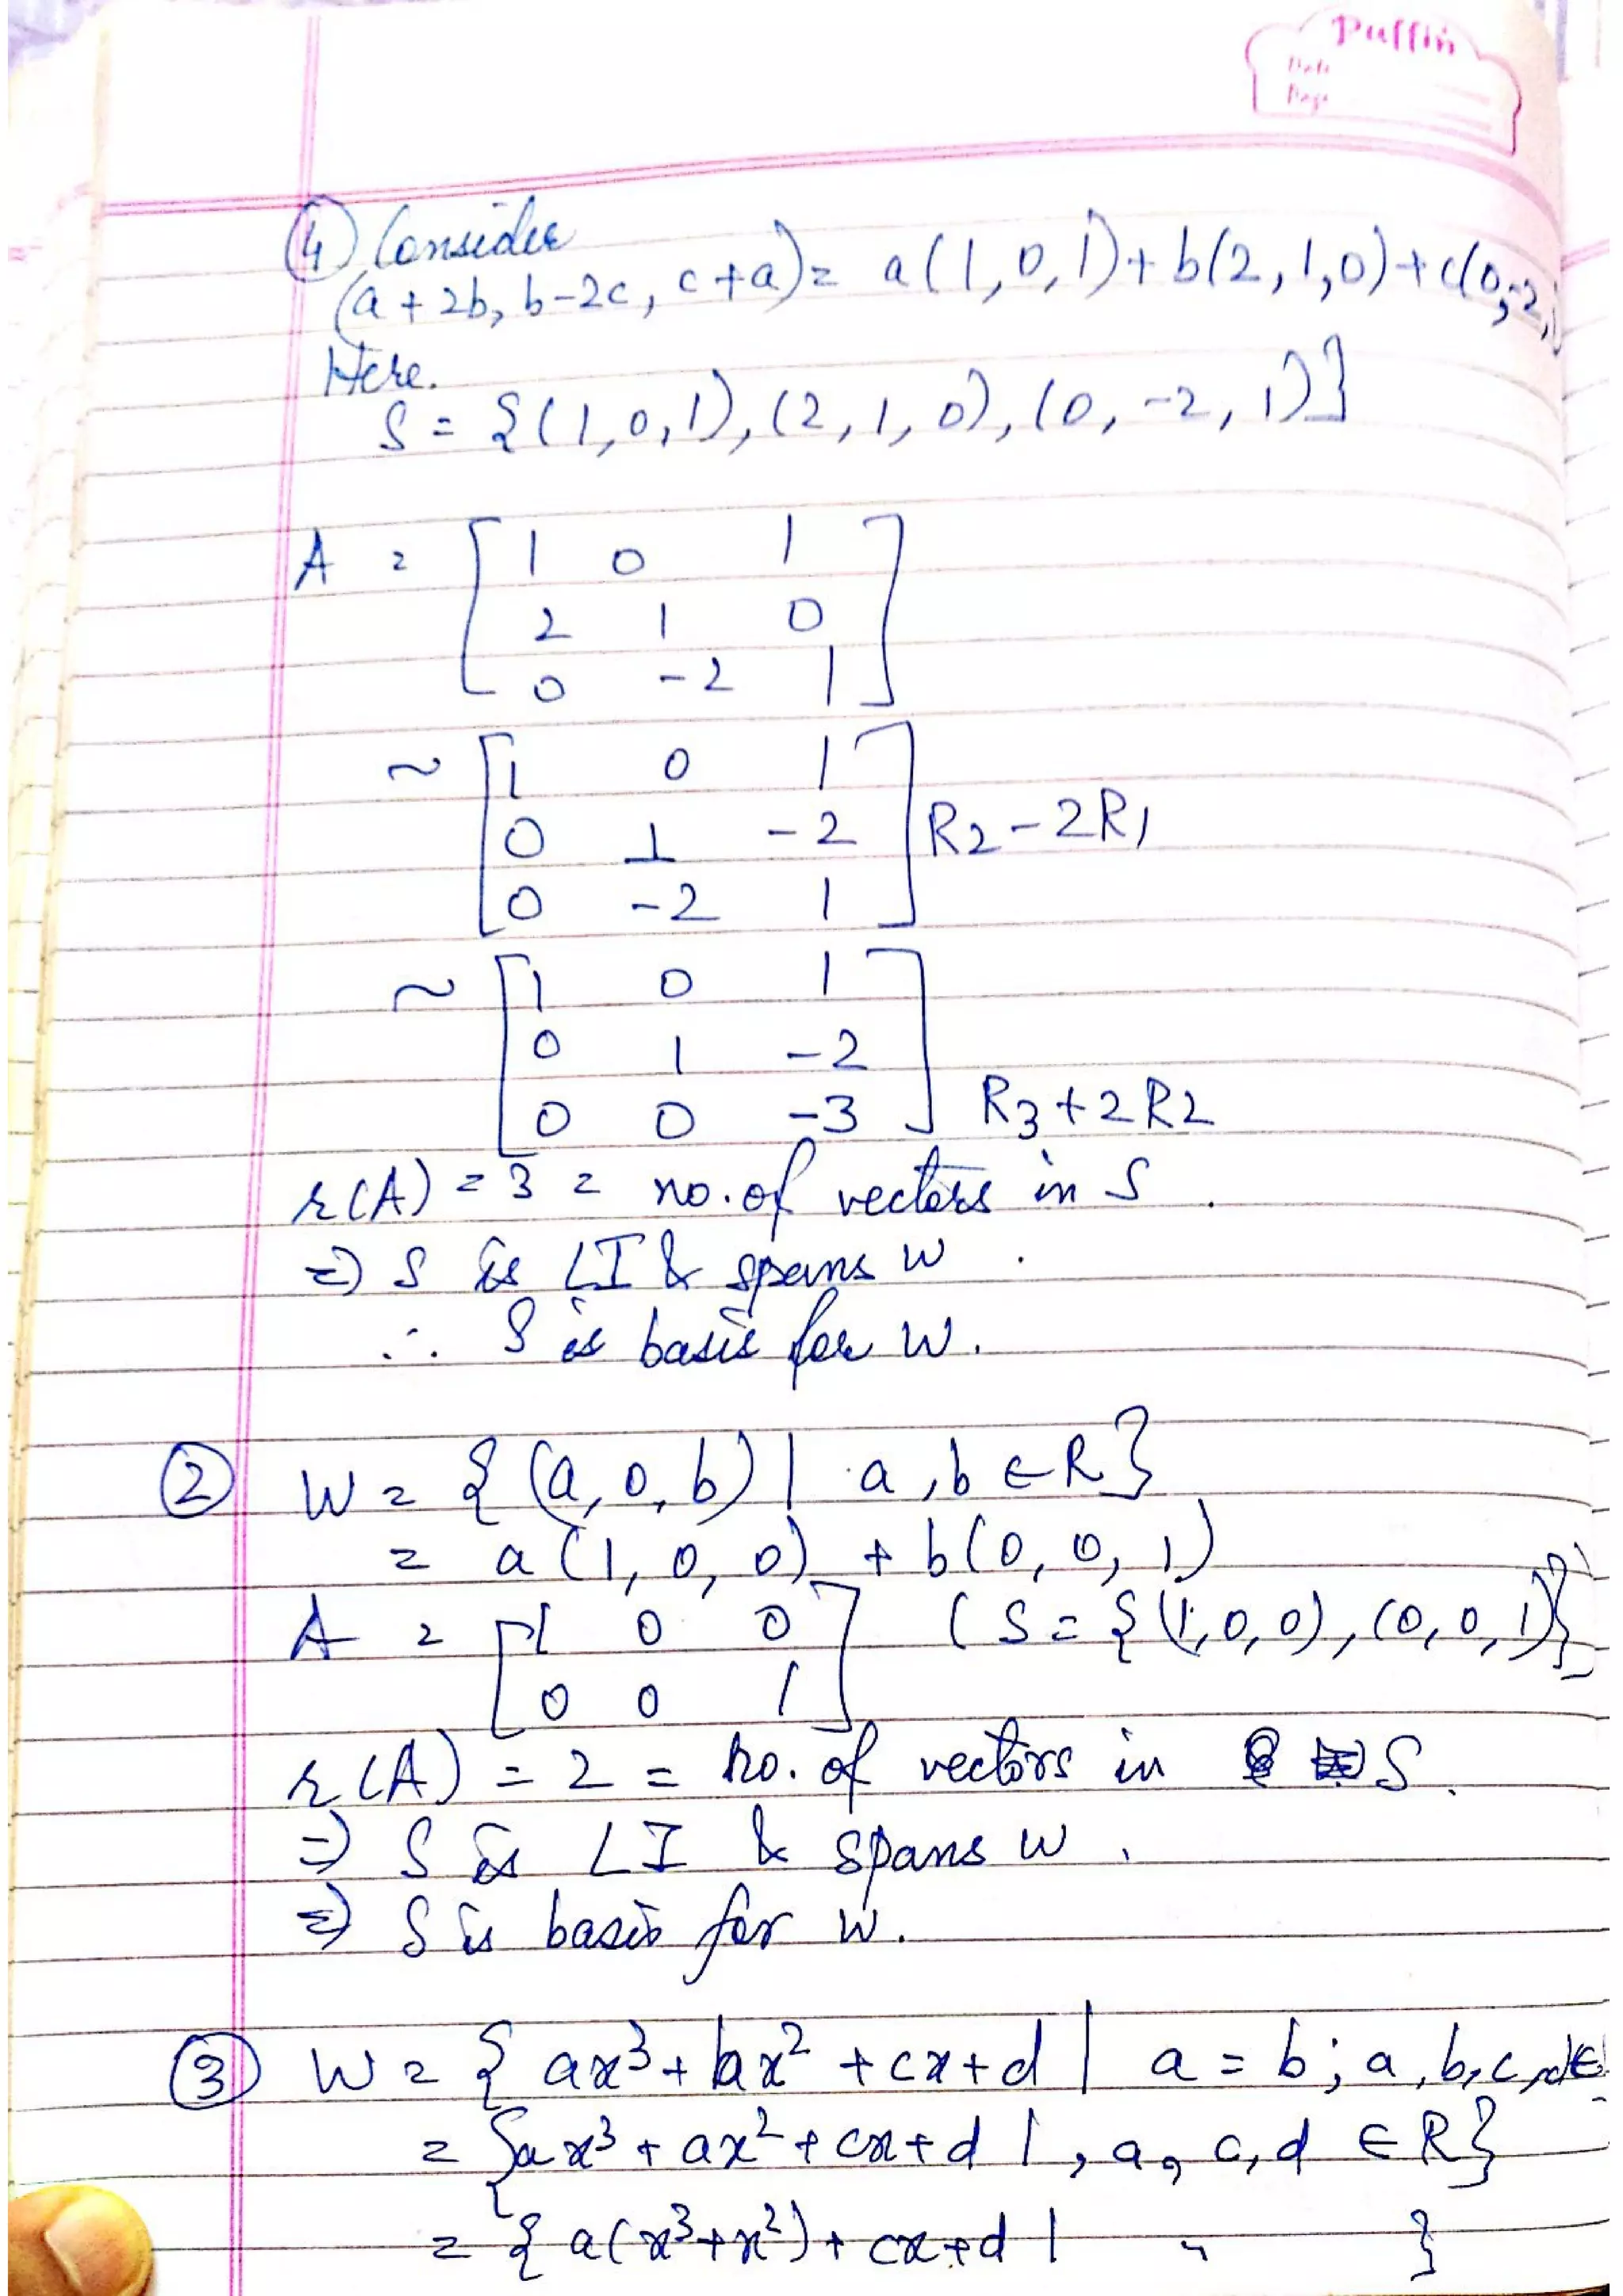 Puffin
Date
Page
④ Consider
(a + 2b, b-2c, c+a) = a(1,0,1) + b(2,1,0) + c(0,-2,
Here.
S = {(1,0,1), (2,1,0), (0,-2,1)}
A = [1 0 1
2 1 0
0 -2 1]
~ [1 0 1
0 1 -2
0 -2 1] R2-2R1
~ [1 0 1
0 1 -2
0 0 -3] R3+2R2
r(A) = 3 = no. of vectors in S.
=> S is LI & spans W.
∴ S is basis for W.
② W = {(a,0,b) | a,b ∈ R}
= a(1,0,0) + b(0,0,1)
A = [1 0 0
0 0 1] (S = {(1,0,0), (0,0,1)})
r(A) = 2 = no. of vectors in S.
=> S is LI & spans W.
=> S is basis for W.
③ W = { ax³ + bx² + cx + d | a = b; a, b, c, d ∈
= {ax³ + ax² + cx + d | , a, c, d ∈ R}
= { a(x³+x²) + cx + d | " }